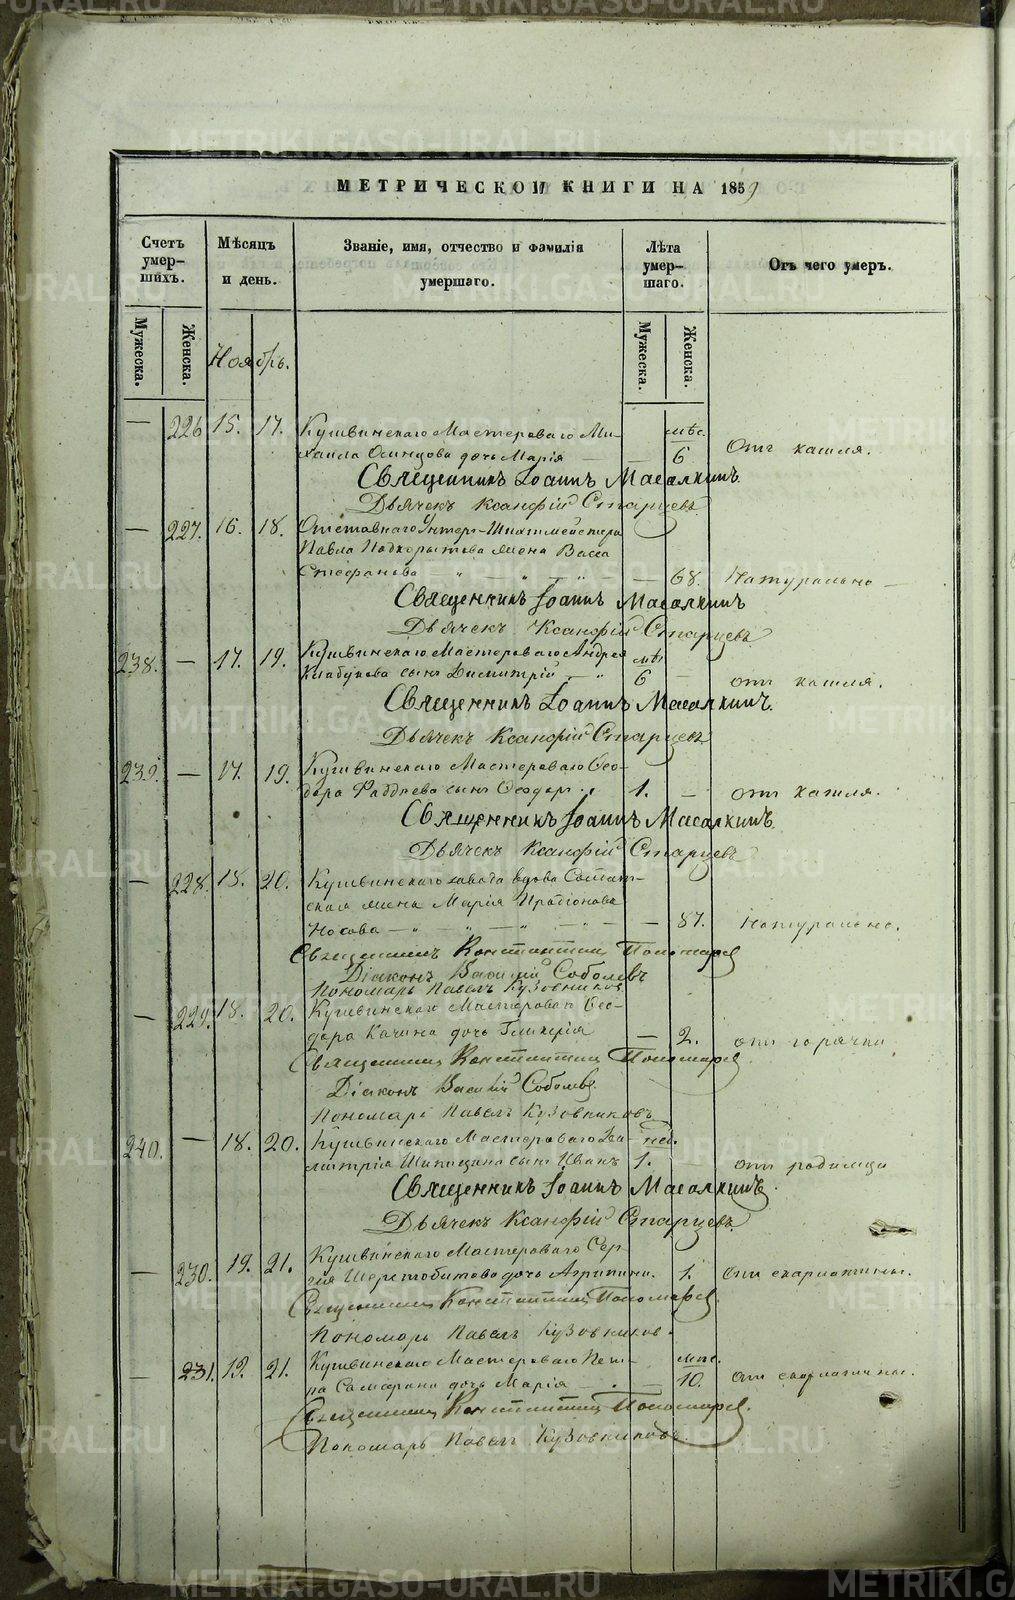 METRIKI.GASO-URAL.RU
МЕТРИЧЕСКОЙ КНИГИ НА 1859
Счетъ умер-шихъ.
Мѣсяцъ и день.
Званіе, имя, отчество и фамилія умершаго.
Лѣта умер-шаго.
Отъ чего умеръ.
Мужеска. Женска.
Ноябрь.
Мужеска. Женска.
— 226 15. 17. Кушвинскаго Мастероваго Ми- мѣс.
хаила Осинцова дочь Марія — — 6 Отъ кашля.
Священникъ Іоаннъ Масалкинъ.
Дьячекъ Ксанфій Старцевъ
— 227. 16. 18. Отставнаго Унтеръ-Шихтмейстера
Павла Подкорытова жена Васса
Стефанова — 68. Натурально —
Священникъ Іоаннъ Масалкинъ
Дьячекъ Ксанфій Старцевъ
238. — 17. 19. Кушвинскаго Мастероваго Андрея мѣс
сынъ Димитрій 6 — отъ кашля.
Священникъ Іоаннъ Масалкинъ.
Дьячекъ Ксанфій Старцевъ
239. — 17. 19. Кушвинскаго Мастероваго Ѳео-
дора сынъ Ѳеодоръ 1. — отъ кашля.
Священникъ Іоаннъ Масалкинъ.
Дьячекъ Ксанфій Старцевъ
— 228. 18. 20. Кушвинскаго завода вдова Солдат-
ская жена Марія Иродіонова
Носова — 87. Натурально.
Священникъ Константинъ Пономаревъ
Діаконъ Василій Соболевъ
Пономарь Павелъ Кузовниковъ
— 229. 18. 20. Кушвинскаго Мастероваго Ѳео-
дора Качина дочь Гликерія — 2. отъ горячки
Священникъ Константинъ Пономаревъ
Діаконъ Василій Соболевъ
Пономарь Павелъ Кузовниковъ
240. — 18. 20. Кушвинскаго Мастероваго Ди- нед.
митрія Шипицина сынъ Иванъ 1. отъ родимца
Священникъ Іоаннъ Масалкинъ.
Дьячекъ Ксанфій Старцевъ.
— 230. 19. 21. Кушвинскаго Мастероваго Сер-
гія Шерстобитова дочь Агрипина. 1. Отъ скарлатины.
Священникъ Константинъ Пономаревъ.
Пономарь Павелъ Кузовниковъ.
— 231. 19. 21. Кушвинскаго Мастероваго Пет- мѣс.
ра дочь Марія — 10. отъ скарлатины.
Священникъ Константинъ Пономаревъ.
Пономарь Павелъ Кузовниковъ.